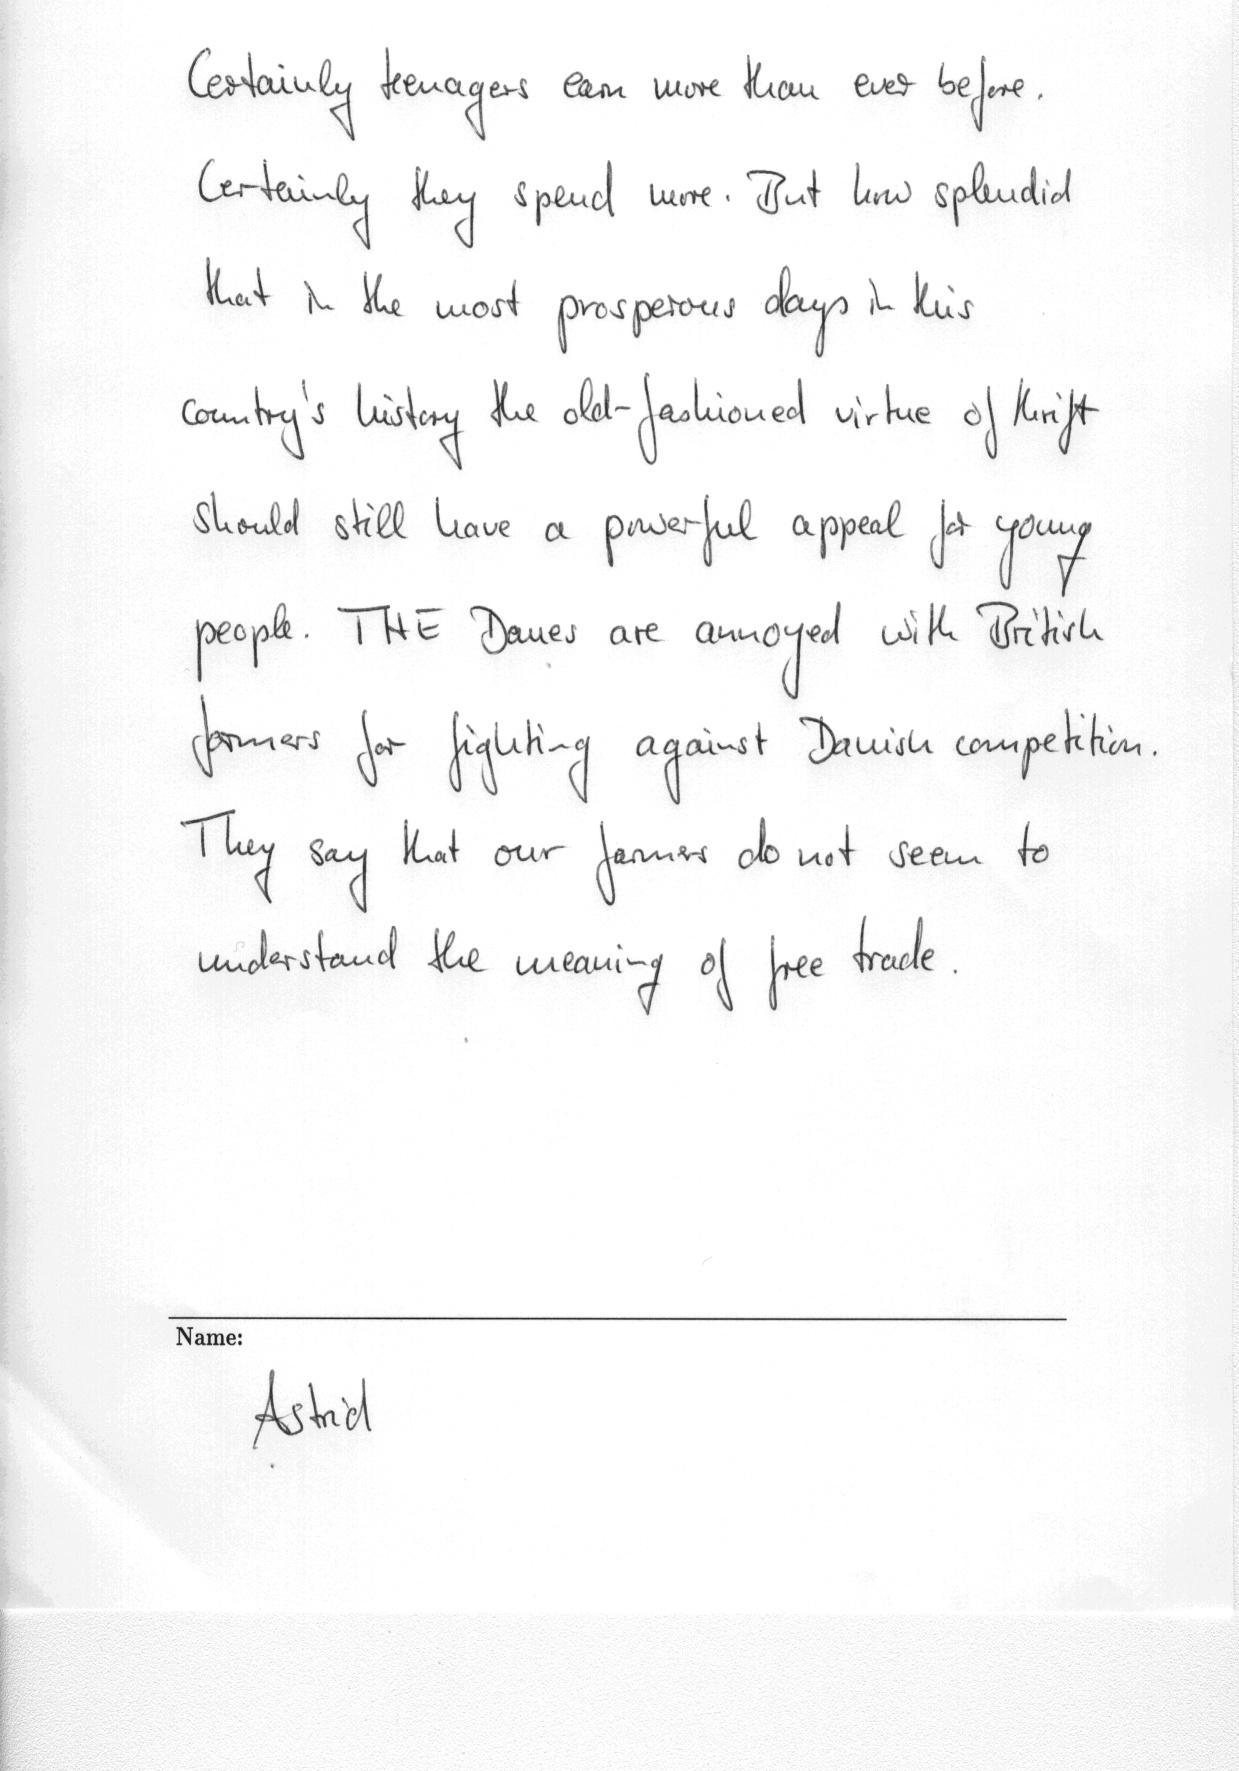 Certainly teenagers earn more than ever before.
Certainly they spend more. But how splendid
that in the most prosperous days in this
country's history the old-fashioned virtue of thrift
should still have a powerful appeal for young
people. THE Danes are annoyed with British
farmers for fighting against Danish competition.
They say that our farmers do not seem to
understand the meaning of free trade.
Name:
Astrid